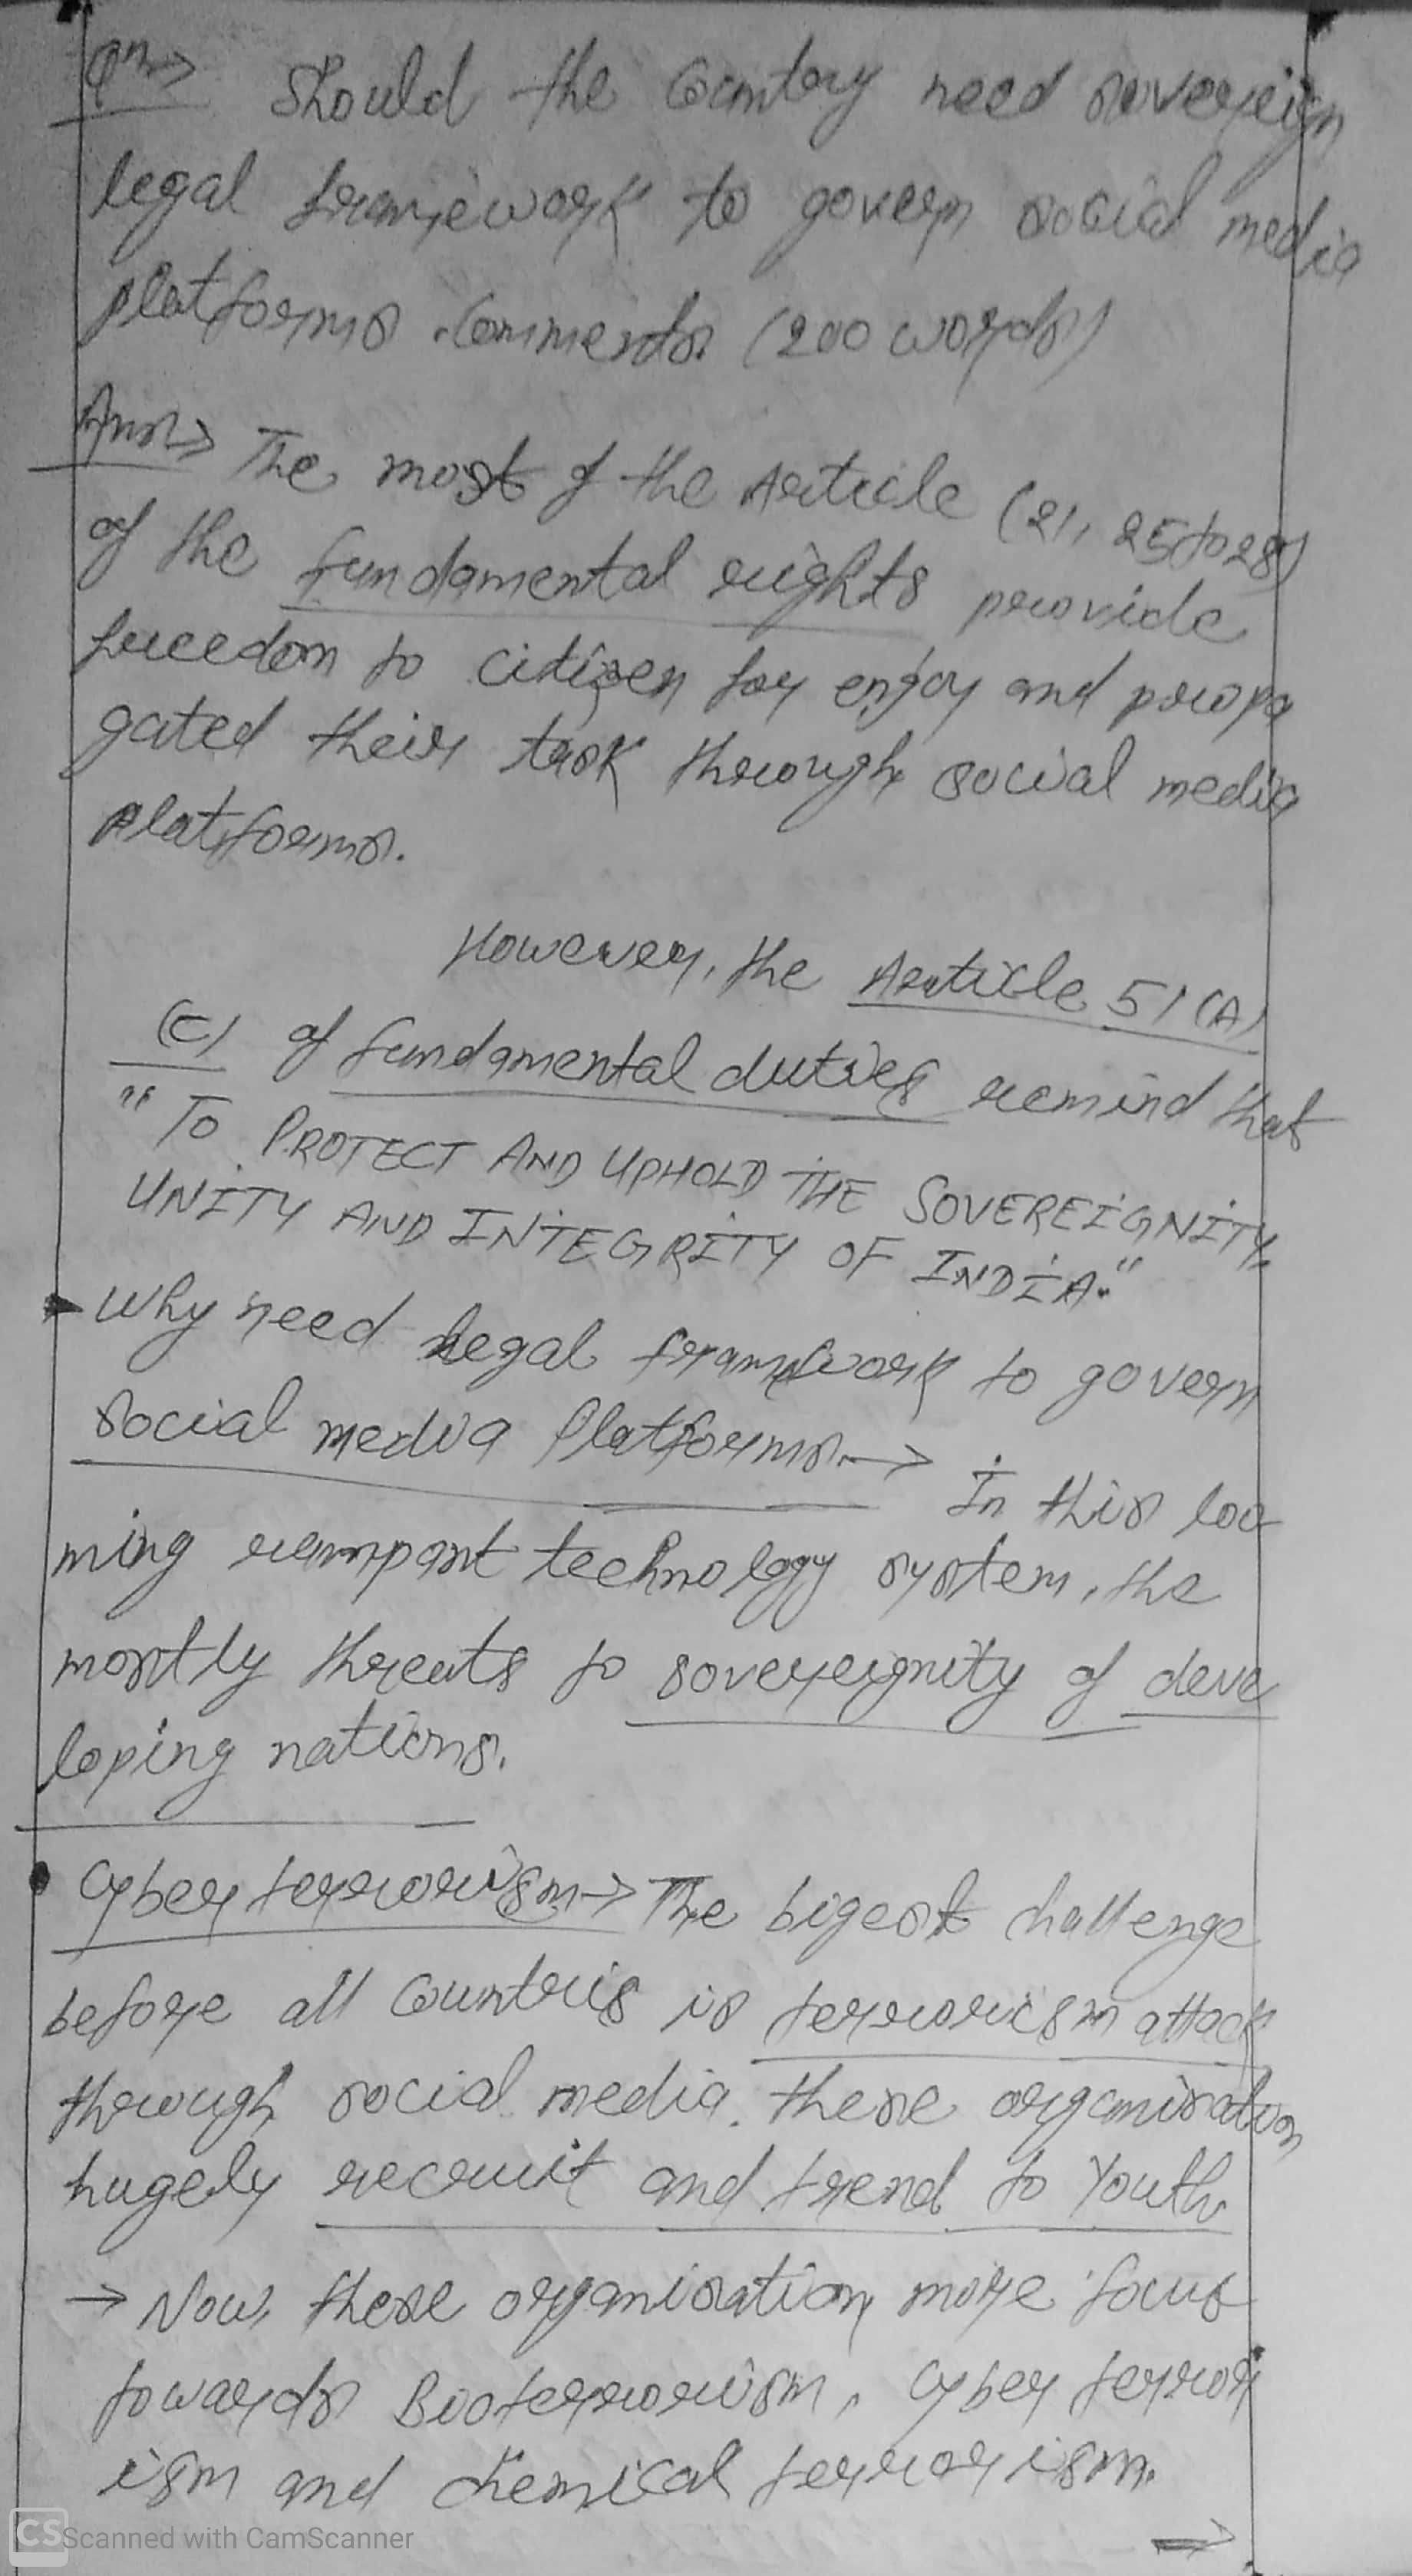 Qn→ Should the Country need sovereign
legal framework to govern social media
platforms. Comments. (200 words)
Ans→ The most of the Article (21, 25 to 28)
of the fundamental rights provide
freedom to citizen for enjoy and propa
gated their task through social media
platforms.
However, the Article 51(A)
(C) of fundamental duties remind that
"TO PROTECT AND UPHOLD THE SOVEREIGNITY,
UNITY AND INTEGRITY OF INDIA."
Why need legal framework to govern
social media Platforms.→ In this loo
ming rampant technology system, the
mostly threats to sovereignity of deve
loping nations.
• Cyber terrorism→ The bigest challenge
before all Countris is terrorism attack
through social media. these organisation
hugely recruit and trend to Youth
→ Now, these organisation more focus
towards Bioterrorism, Cyber terror
ism and chemical terrorism.
→
CS Scanned with CamScanner